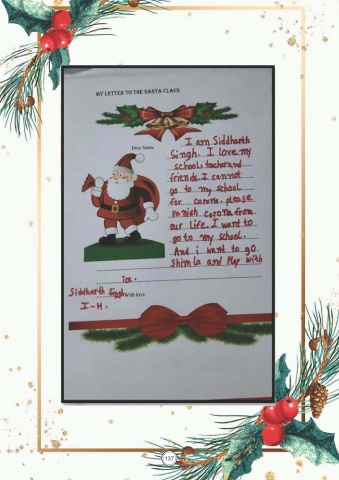 MY LETTER TO THE SANTA CLAUS
Dear Santa
I am Siddharth
Singh. I love my
school, teacher and
friends. I cannot
go to my school
for corona. please
vanish corona from
our life. I want to
go to my school.
And i want to go
Shimla and Play with
ice.
Siddharth Singh With love
I-H.
137